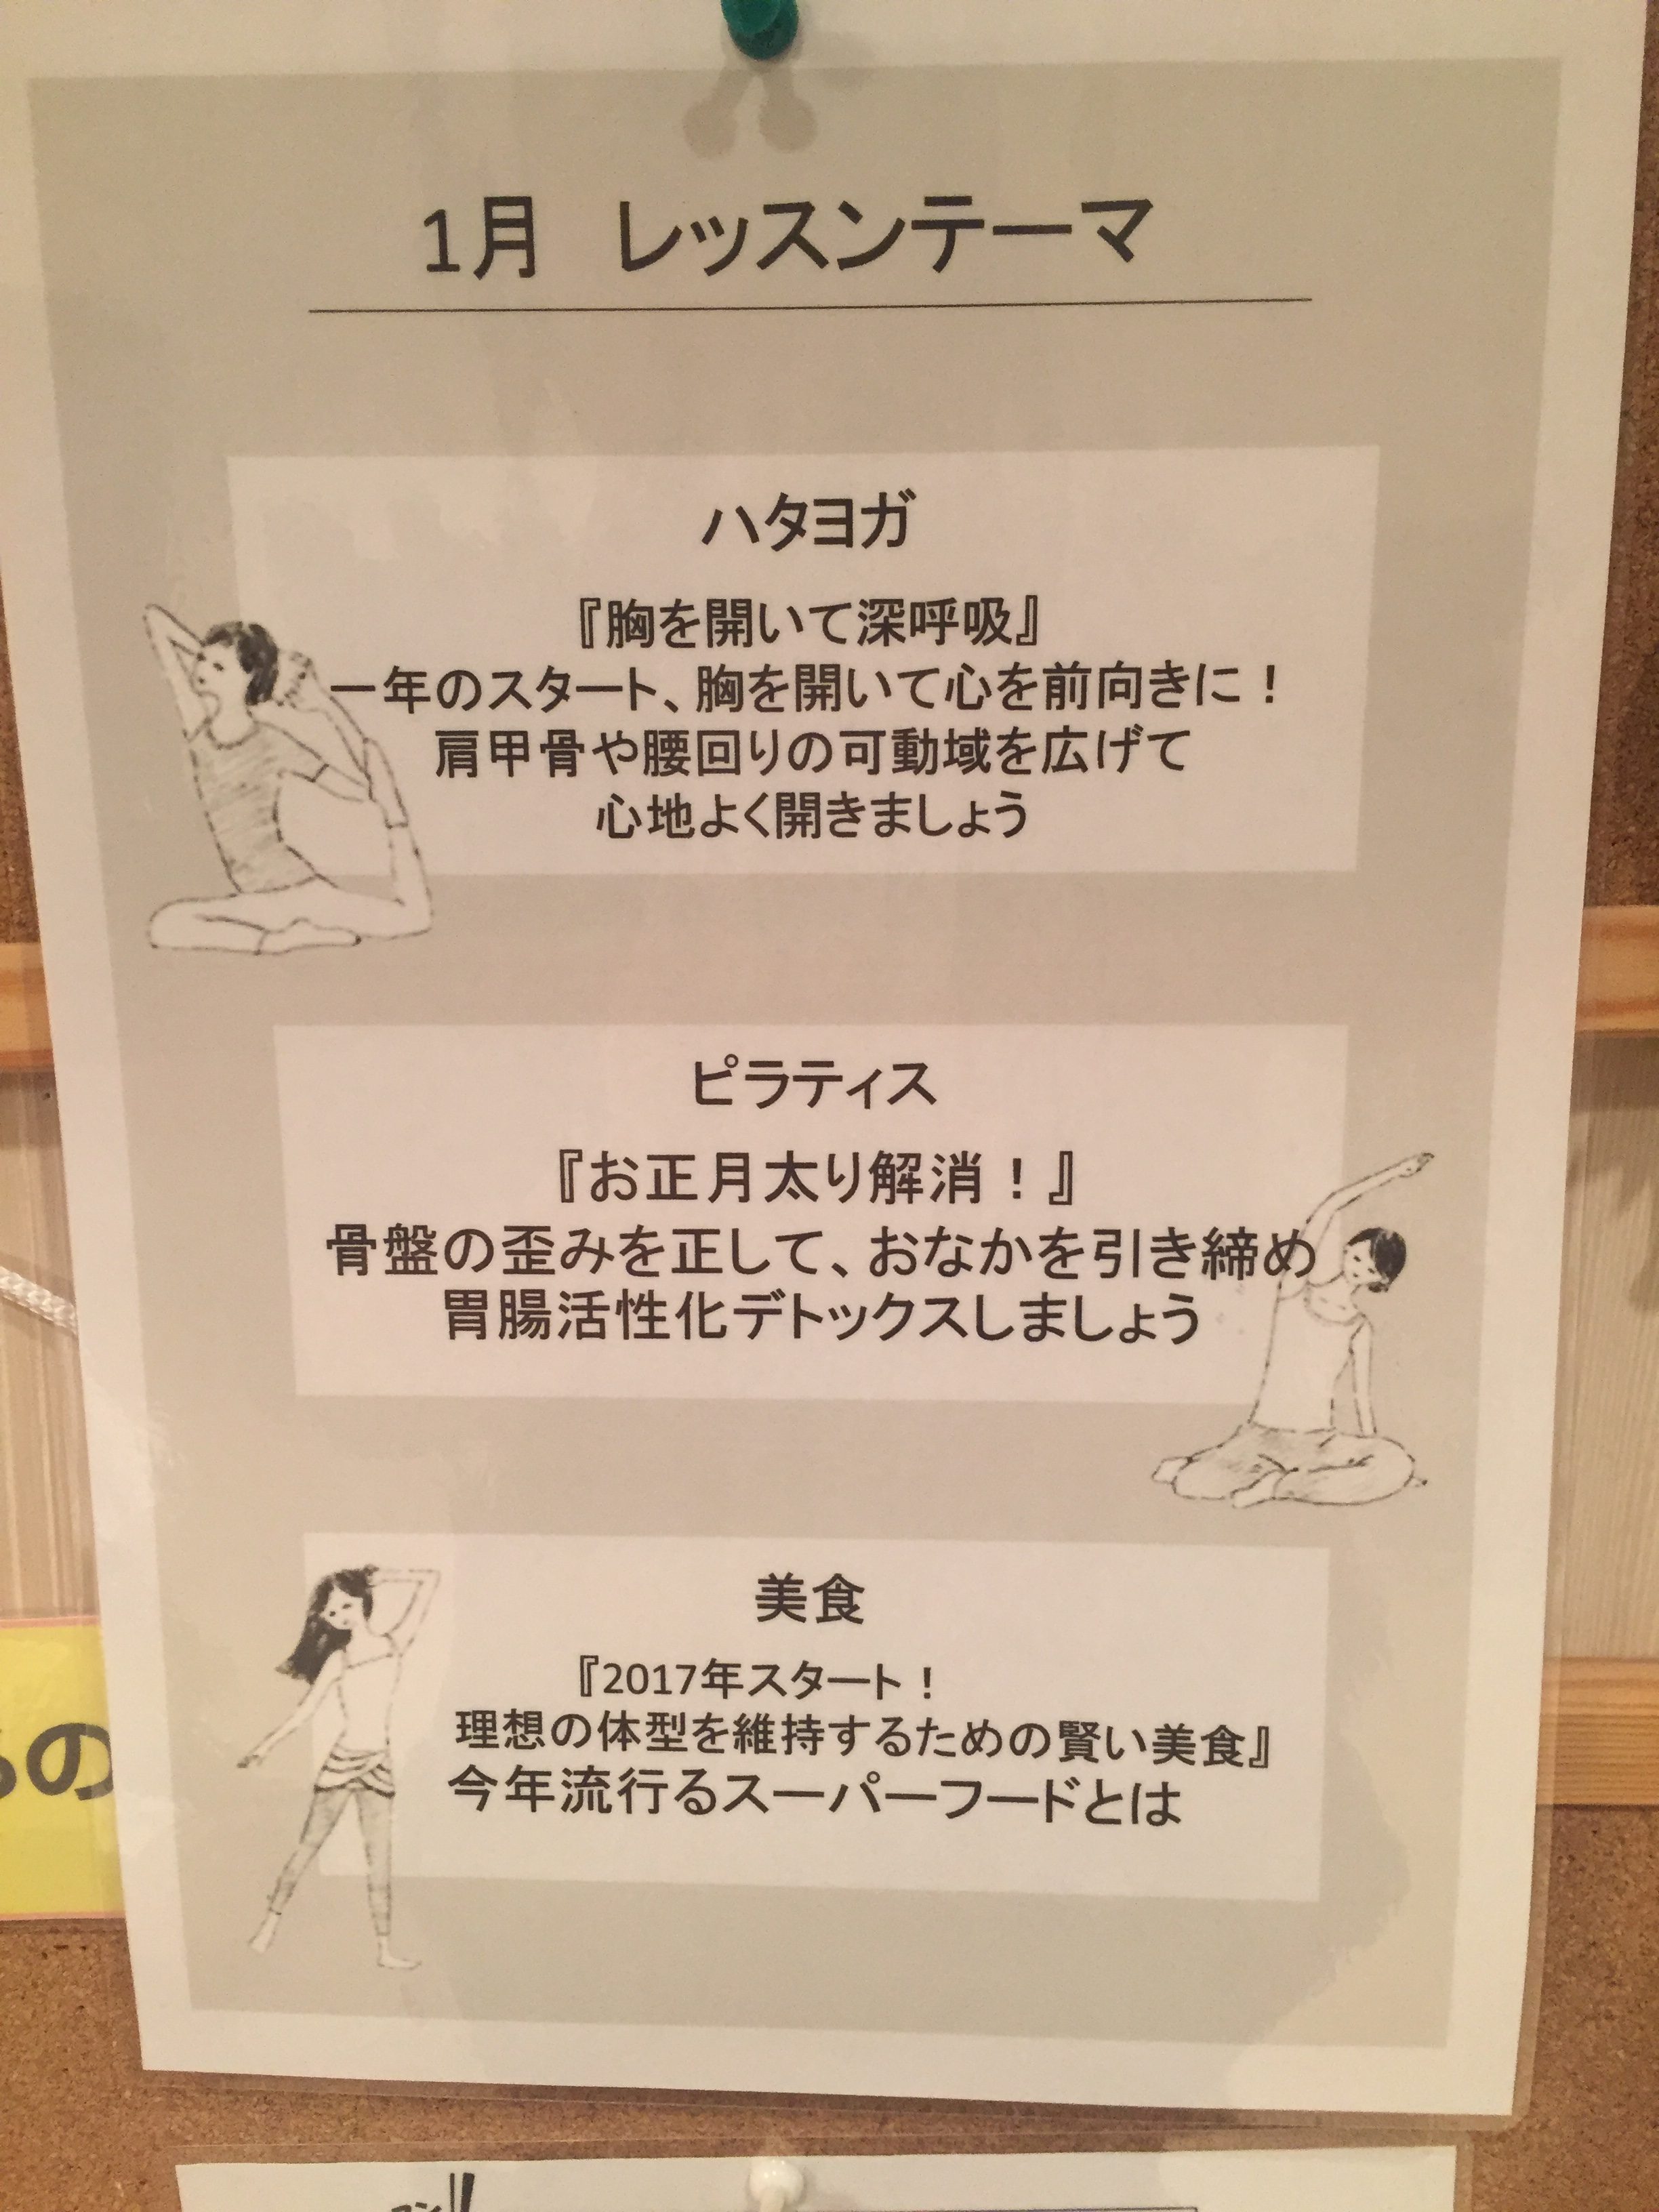 1月 レッスンテーマ
ハタヨガ
『胸を開いて深呼吸』
一年のスタート、胸を開いて心を前向きに！
肩甲骨や腰回りの可動域を広げて
心地よく開きましょう
ピラティス
『お正月太り解消！』
骨盤の歪みを正して、おなかを引き締め
胃腸活性化デトックスしましょう
美食
『2017年スタート！
理想の体型を維持するための賢い美食』
今年流行るスーパーフードとは
の